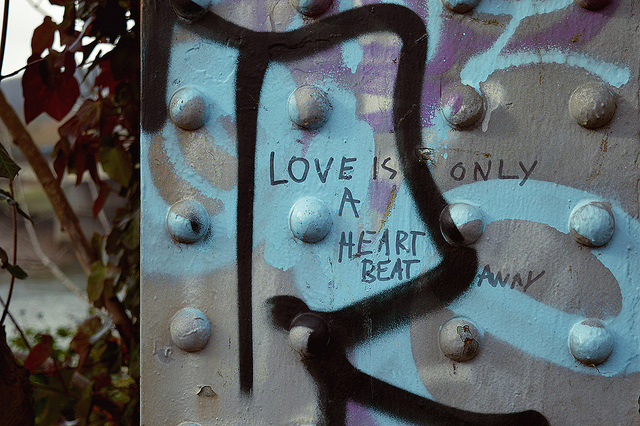 LOVE IS ONLY
A
HEART
BEAT AWAY